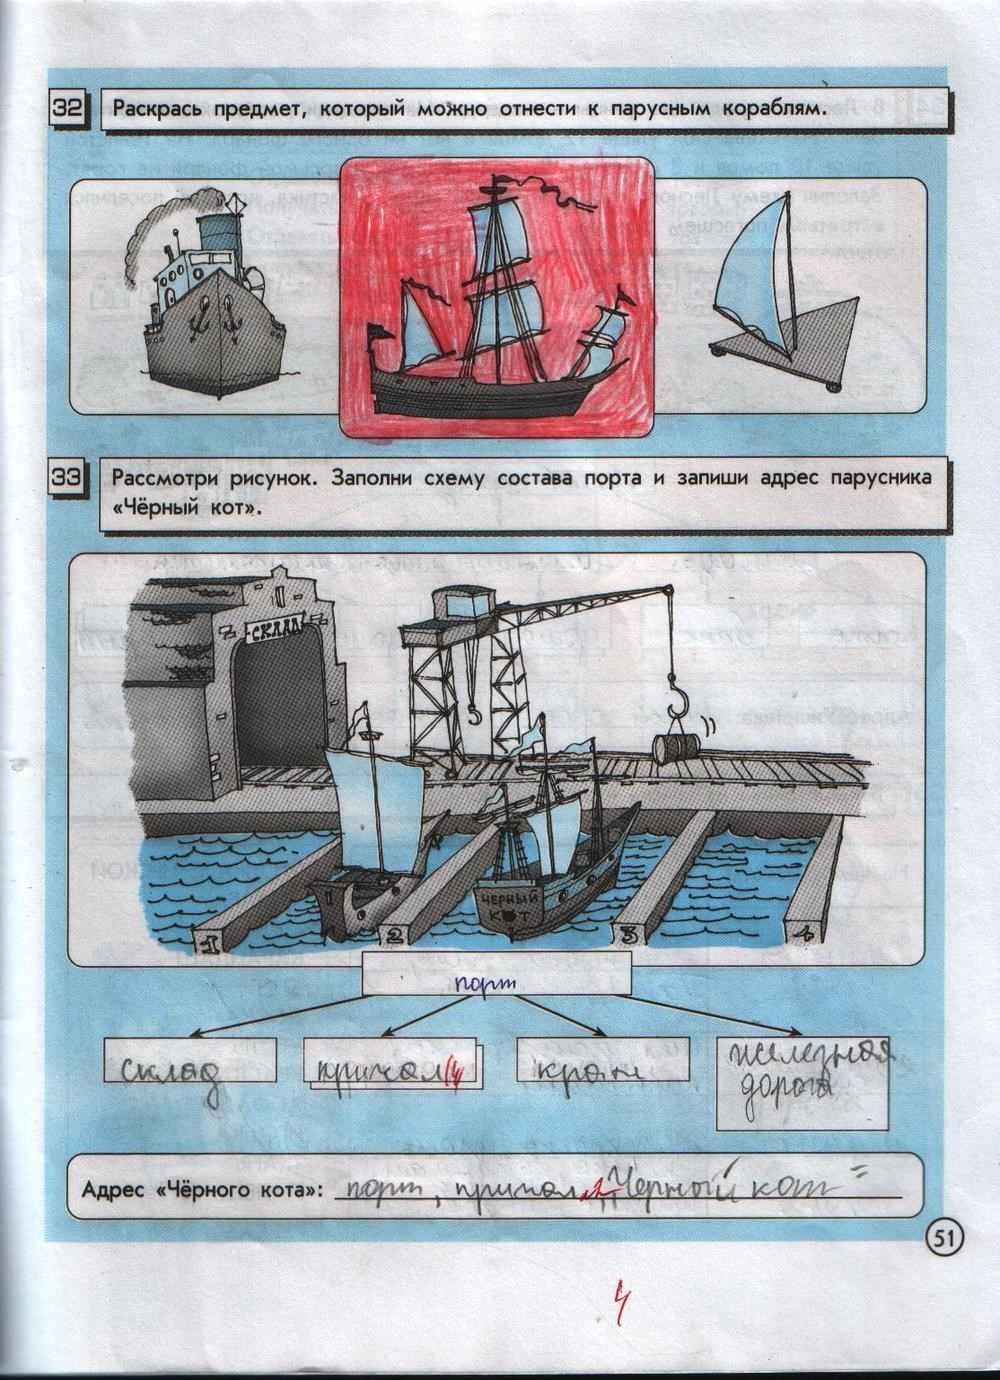 32 Раскрась предмет, который можно отнести к парусным кораблям.
33 Рассмотри рисунок. Заполни схему состава порта и запиши адрес парусника
«Чёрный кот».
СКЛАД
ЧЕРНЫЙ
КОТ
1 2 3 4
порт
склад причал (4 кран железная
дорога
Адрес «Чёрного кота»: порт, причал 2 „Черный кот"
51
4